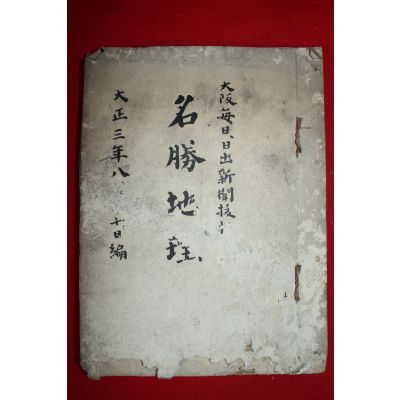 大阪毎日、日出新聞抜
名勝地理
大正三年八 十日編